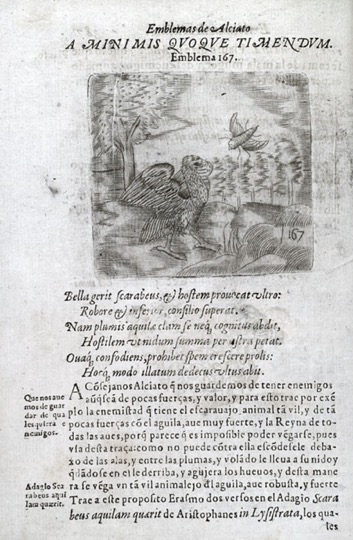 Emblemas de Alciato
A MINIMIS QVOQVE TIMENDVM.
Emblema 167.
167
Bella gerit scarabeus, & hostem prouocat vltro:
Robore & inferior, consilio superat.
Nam plumis aquilæ clam se neq, cognitus abdit,
Hostilem vt nidum summa per astra petat.
Ouaq, confodiens, prohibet spem crescere prolis:
Hocq, modo illatum dedecus vltus abit.
ACōsejanos Alciato q̄ nos guardemos de tener enemigos
aūq̄ seā de pocas fuerças, y valor, y para esto trae por exē
plo la enemistad q̄ tiene el escarauajo, animal tā vil, y de tā
pocas fuerças cō el aguila, aue muy fuerte, y la Reyna de to
das las aues, porq̄ parece q̄ es impossible poder vēgarse, pues
vsa desta traça: como no puede cōtra ella escōdesele deba-
xo de las alas, y entre las plumas, y volādo le lleua a su nido y
alli dōde es en el derriba, y agujera los hueuos, y desta mane
ra se vēga vn tā vil animalejo dl aguila, aue robusta, y fuerte
Trae a este proposito Erasmo dos versos en el Adagio Scara
beus aquilam quærit de Aristophanes in Lysistrata, los qua-
les
Que nos aue
mos de guar
dar de qua
lesquiera e
nemigos.
Adagio Sca
rabeus aqui
lam quærit.